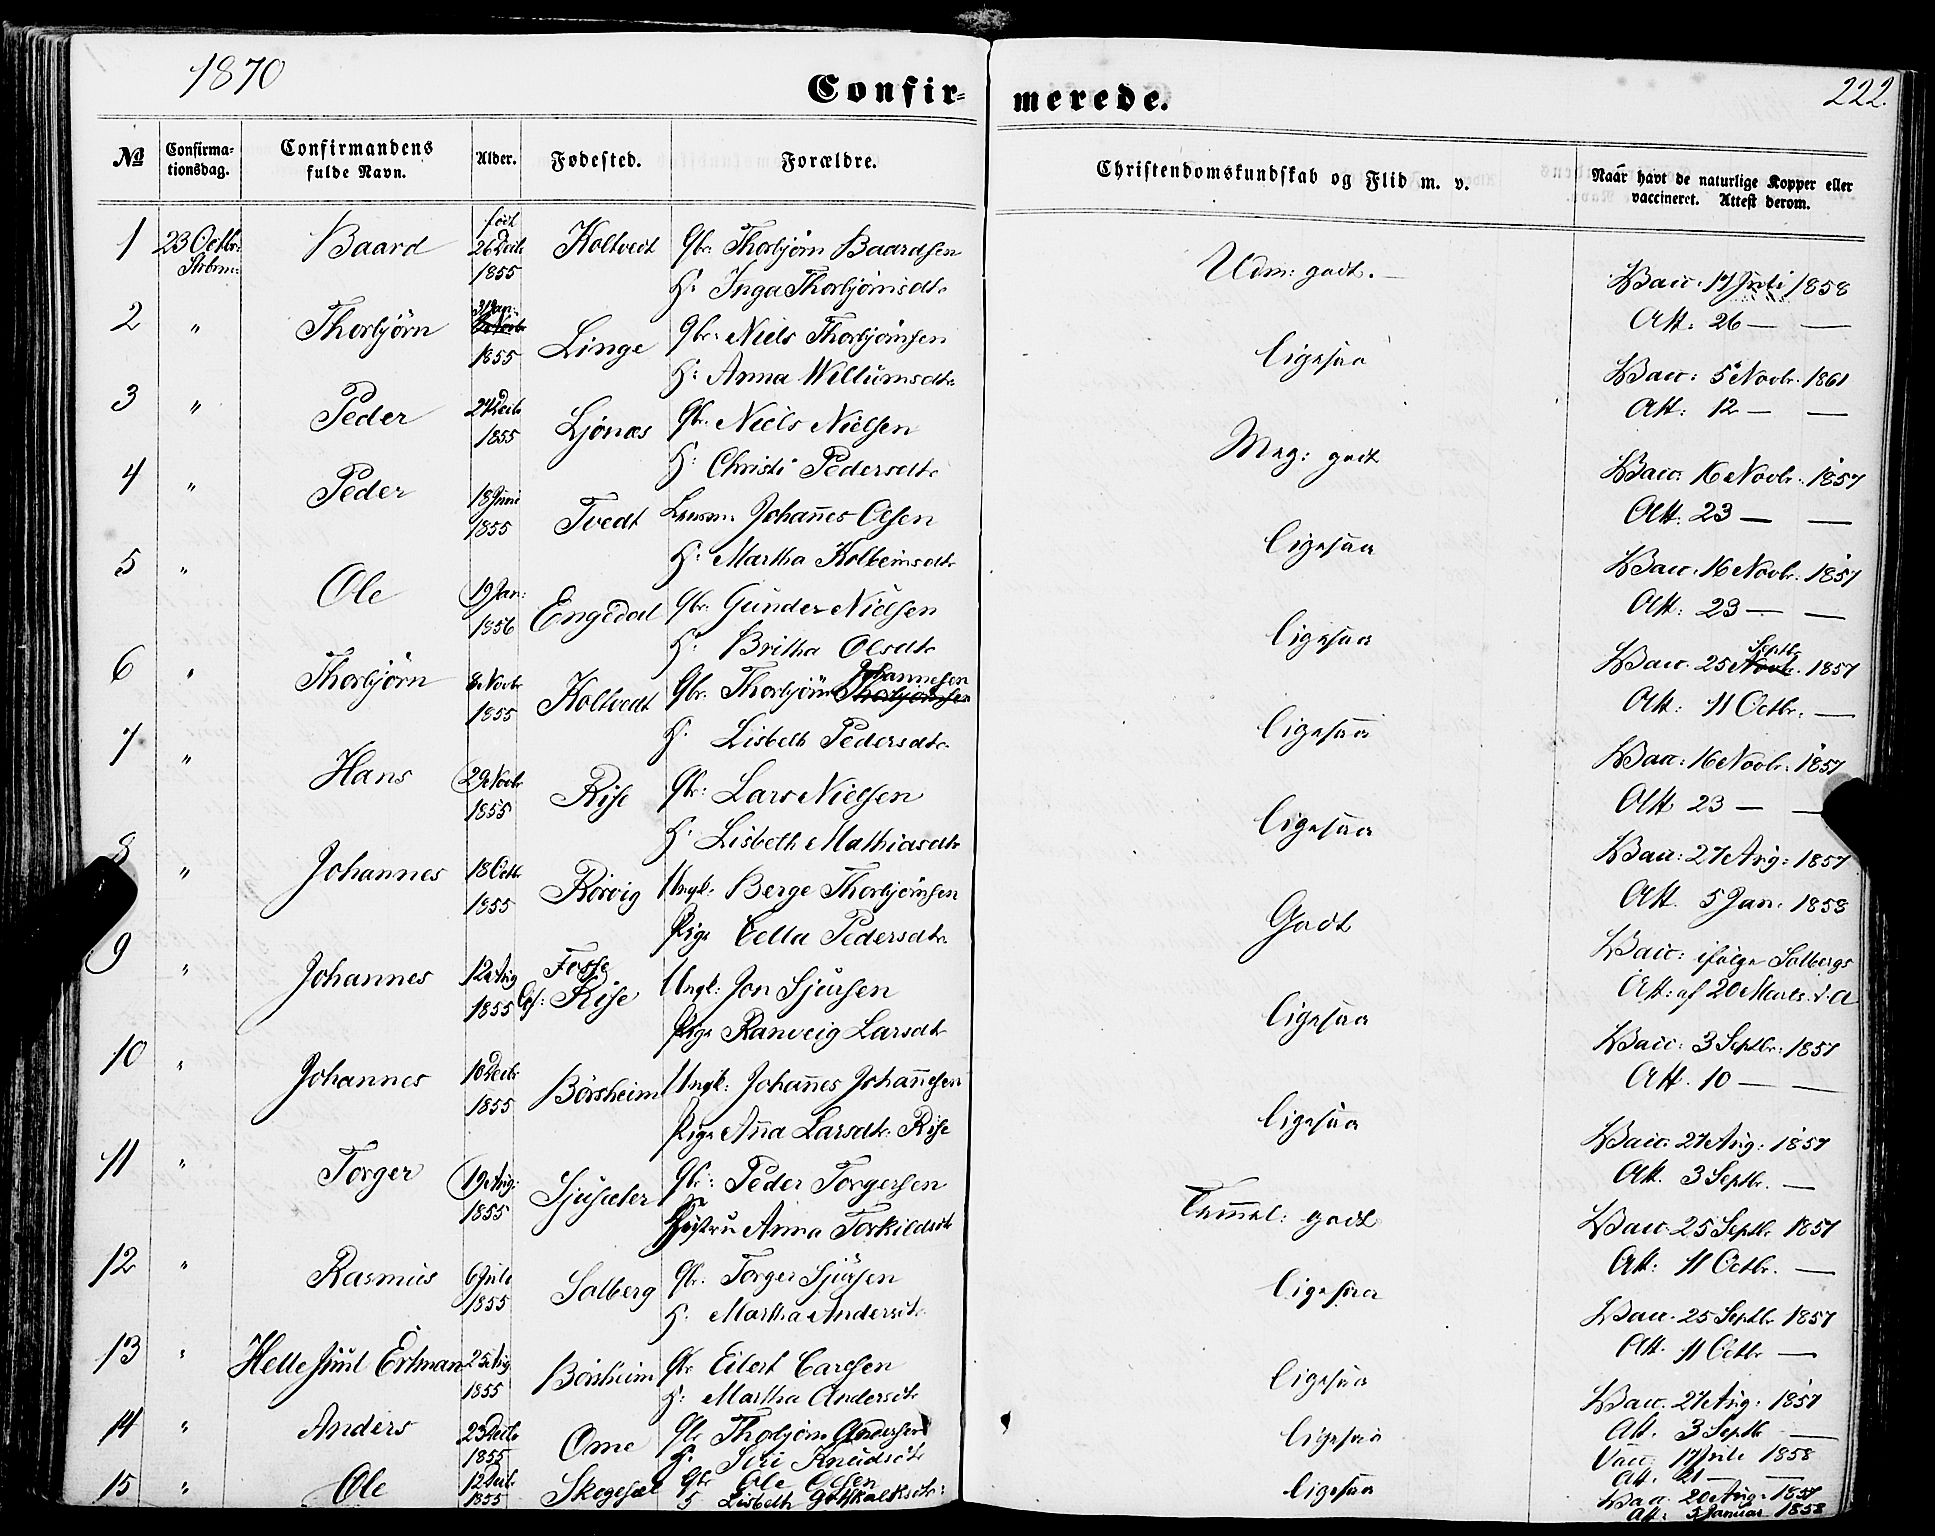 1870
Confirmerede.
222.
№ Confirmationsdag. Confirmandens fulde Navn. Alder. Fødested. Forældre. Christendomskundskab og Flid m. v. Naar havt de naturlige Kopper eller vaccineret. Attest derom.
1 23 Octbr: Baard født 26 Decb 1855 Koltvedt Gbr. Thorbjørn Baardsen Udm: godt. Vacc. 17 Juli 1858
H: Inga Thorbjørnsdtr Att: 26 — —
2 " Thorbjørn 31 Jan: 1855 Linge Gbr: Niels Thorbjørnsen ligesaa Vacc: 5 Novbr. 1861
H: Anna Willumsdtr Att: 12 — —
3 " Peder 24 Decb 1855 Ljønæs Gbr. Niels Nielsen Meg: godt Vacc. 16 Novbr. 1857
H: Christi Pedersdtr Att. 23 — —
4 " Peder 18 Juni 1855 Tvedt Lensm. Johañes Olsen ligesaa Vacc. 16 Novbr. 1857
H: Martha Kolbeinsdtr Att: 23 — —
5 " Ole 19 Jan: 1856 Engedal Gbr. Gunder Nielsen ligesaa Vacc. 25 Septb. 1857
H: Britha Olsdtr Att: 11 Octbr. —
6 " Thorbjørn 8 Novbr 1855 Koltvedt Gbr. Thorbjørn Johannesen ligesaa Vacc: 16 Novbr. 1857
H: Lisbeth Pedersdtr Att 23 — —
7 " Hans 29 Novbr 1855 Rise Gbr: Lars Nielsen ligesaa Vacc: 27 Aug: 1857
H. Lisbeth Mathiasdtr Att. 5 Jan. 1858
8 " Johannes 18 Octb 1855 Rörvig Ungk: Berge Thorbjørnsen Godt Vacc: ifølge Solbergs
Pige Cella Pedersdtr Att: af 20 Marts d. A
9 " Johannes 12 Aug 1855 Fosse Rise Ungk: Jon Sjursen ligesaa Vacc: 3 Septbr: 1857
Pige Ranveig Larsdtr Att. 10 — —
10 " Johannes 10 Decb 1855 Börsheim Ungk: Johañes Johañesen ligesaa Vacc. 27 Aug: 1857
Pige Aña Larsdtr. Rise Att. 3 Septbr. —
11 " Torger 19 Aug: 1855 Sjusæter Gbr: Peder Torgersen Tem̃el: godt Vacc. 25 Septb. 1857
Hustru Anna Torkildsdt Att: 11 Octbr. —
12 " Rasmus 6 Juli 1855 Solberg Gbr. Torger Sjursen ligesaa Vacc. 25 Septbr 1857
H. Martha Andersdt. Att. 11 Octbr —
13 " Hellesund Ertman 25 Aug 1855 Börsheim Gbr Eilert Carlsen ligesaa Vacc. 27 Aug: 1857
H: Martha Andersdt Att. 3 Septb —
14 " Anders 23 Decb 1855 Ome Gbr Thorbjørn Andersen ligesaa Vacc. 17 Juli 1858
H. Siri Knudsdt Att. 21 — —
15 " Ole 12 Decb 1855 Skogesæl Gbr Ole Olsen ligesaa Vacc. 20 Aug. 1857
Lisbeth Gotskalksdtr: Att: 5 Januar 1858